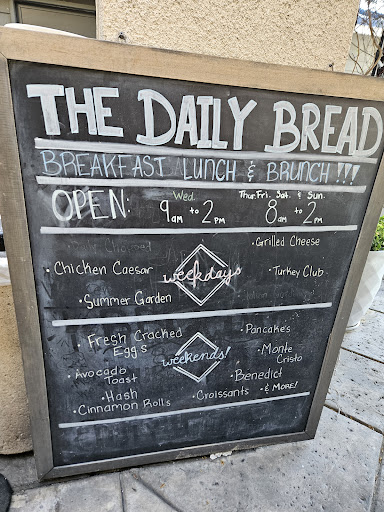 THE DAILY BREAD
BREAKFAST LUNCH & BRUNCH !!!
Wed. Thur. Fri. Sat. & Sun.
OPEN: 9am to 2pm 8am to 2pm
• Grilled Cheese
• Chicken Caesar weekdays • Turkey Club
• Summer Garden
• Fresh Cracked Egg's • Pancake's
weekends! • Monte Cristo
• Avocado Toast • Benedict
• Hash • Croissants • & MORE!
• Cinnamon Rolls